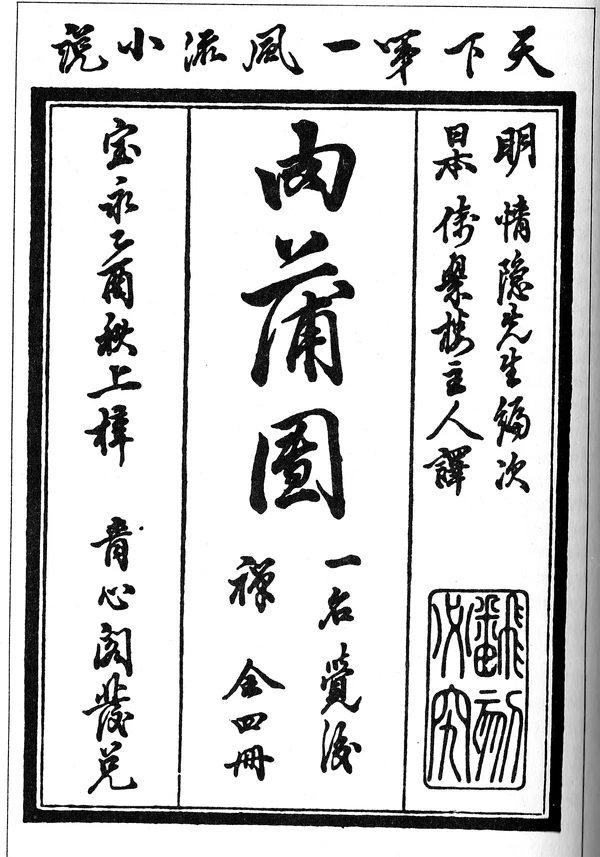 天下第一風流小説
明 情隠先生編次
日本 倚翠楼主人譯
肉蒲團
一名覺後
禅 全四冊
宝永乙酉秋上梓 青心閣發兌
翻刻必究